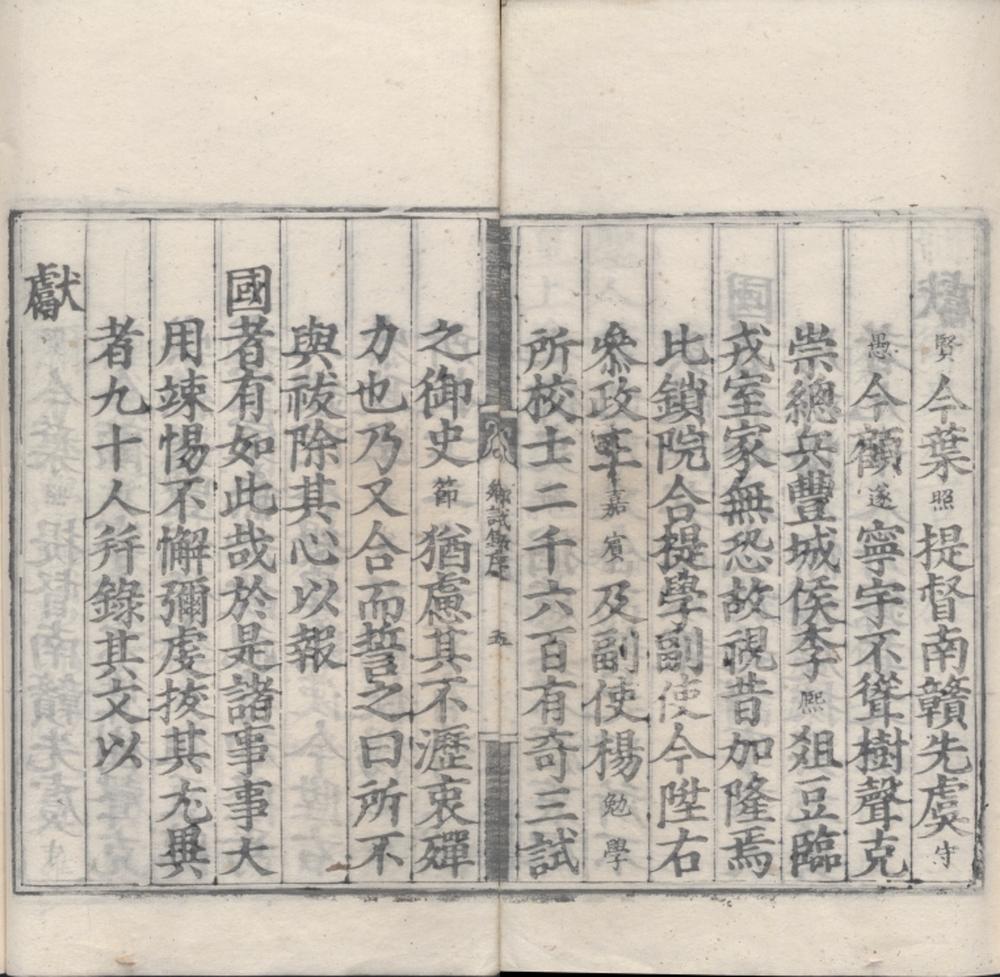 賢今葉照提督南贛先虞守
愚今顧遂寧宇不聳樹聲克
崇總兵豐城侯李熙俎豆臨
戎室家無恐故視昔加隆焉
比鎖院合提學副使今陞右
參政王嘉賓及副使楊勉學
所校士二千六百有奇三試
鄉試錄序 五
之御史節猶慮其不瀝衷殫
力也乃又合而誓之曰所不
與祓除其心以報
國者有如此哉於是諸事事大
用竦惕不懈彌虔拔其尤異
者九十人并錄其文以
獻